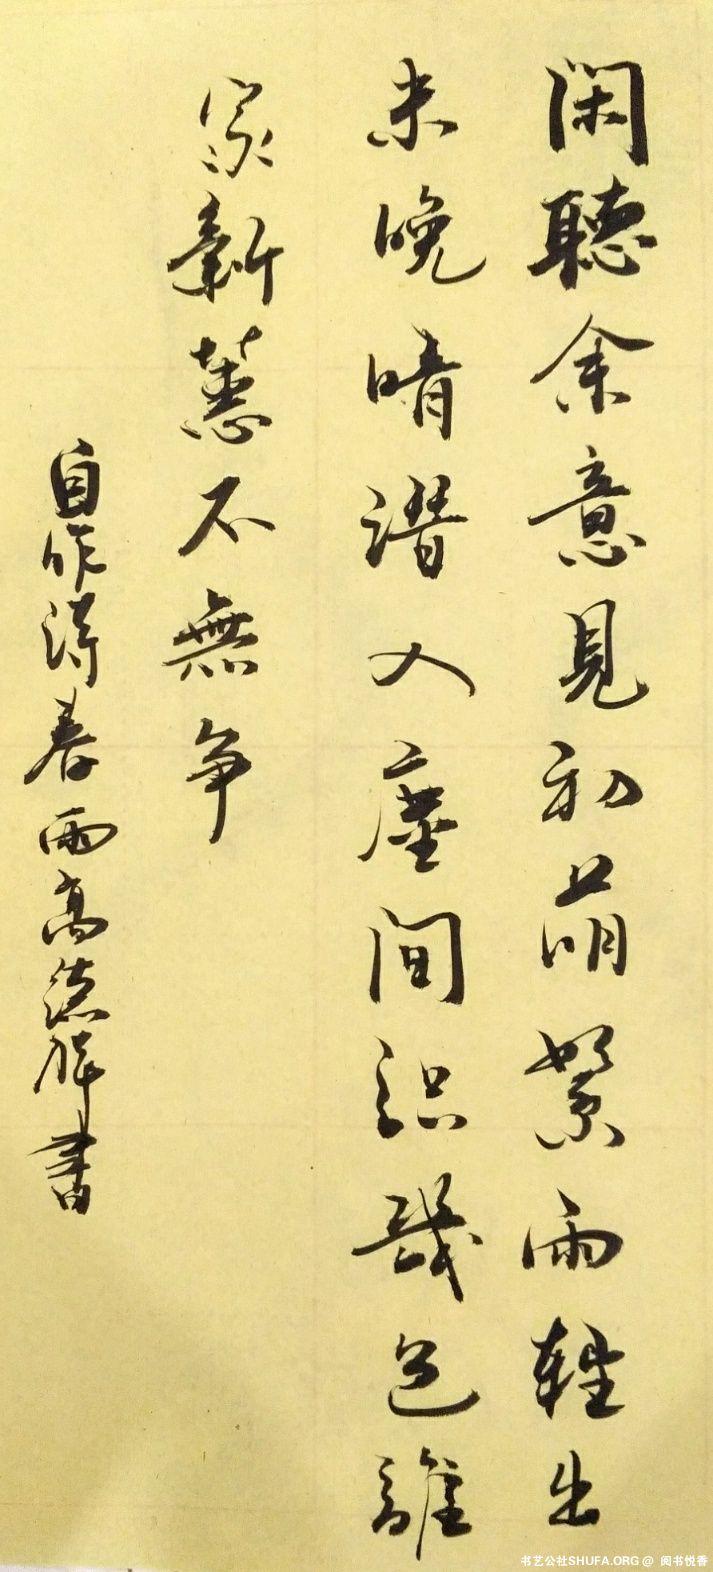 閑聽余意見初萌繁雨輕出
未晚晴潜入塵間识幾色誰
家新蕙不無争
自作詩春雨高德祥書
书艺公社SHUFA.ORG @ 阅书悦香